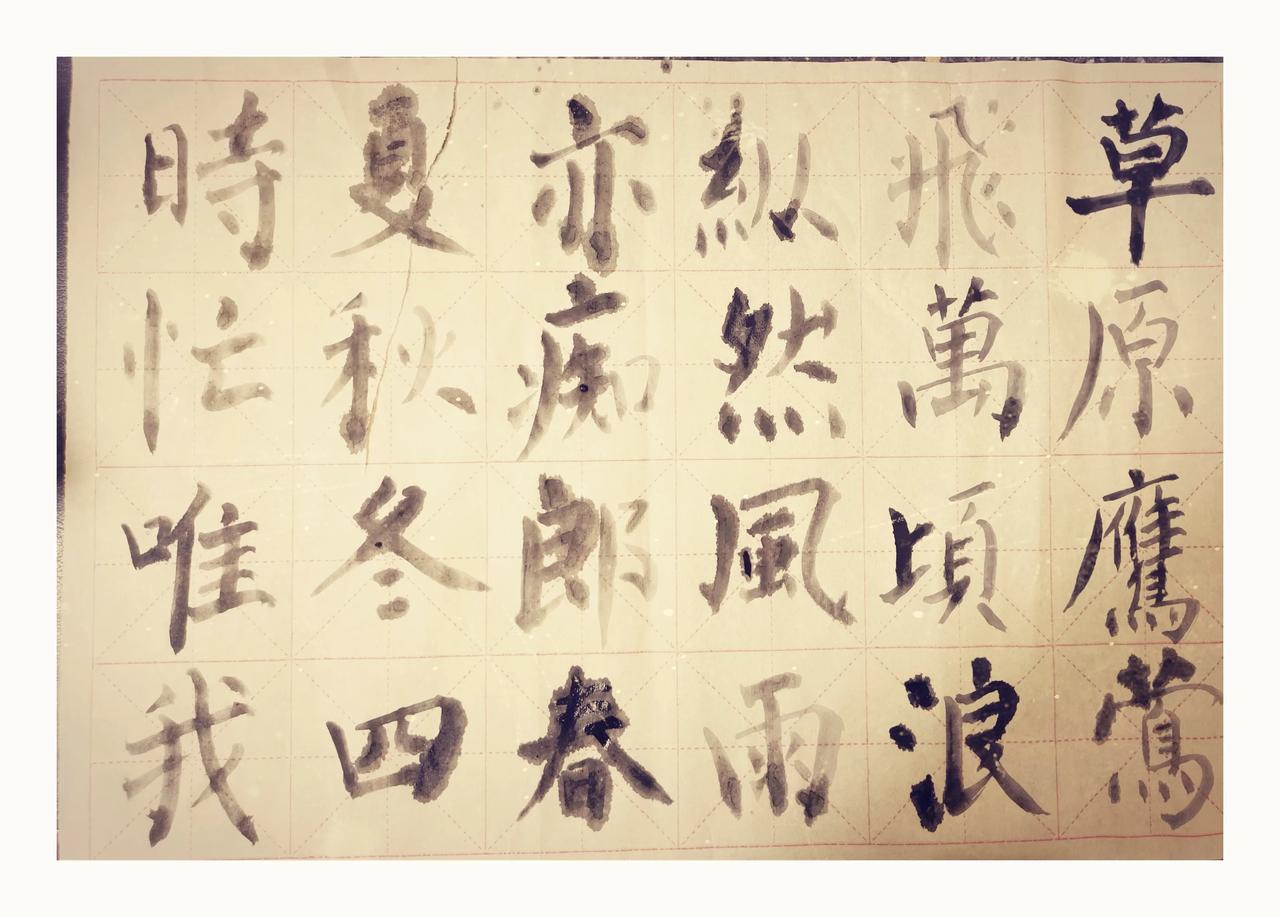 草原鹰莺
飛萬頃浪
纵然風雨
亦痴郎春
夏秋冬四
時忙唯我